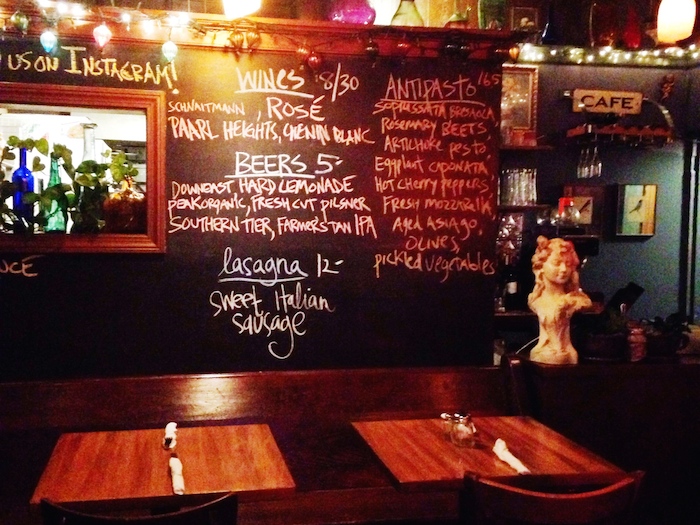 US ON INSTAGRAM!
WINES 8/30
SCHNAITMANN, ROSÉ
PAARL HEIGHTS, CHENIN BLANC
BEERS 5-
DOWNEAST, HARD LEMONADE
PEAK ORGANIC, FRESH CUT PILSNER
SOUTHERN TIER, FARMER'S TAN IPA
lasagna 12-
sweet Italian
sausage
ANTIPASTO
SOPRESSATA BRESAOLA
Rosemary BEETS,
ARTICHOKE pesto,
Eggplant CAPONATA
Hot cherry peppers,
Fresh mozzarella,
Aged Asiago,
OLIVES,
pickled vegetables
CAFE